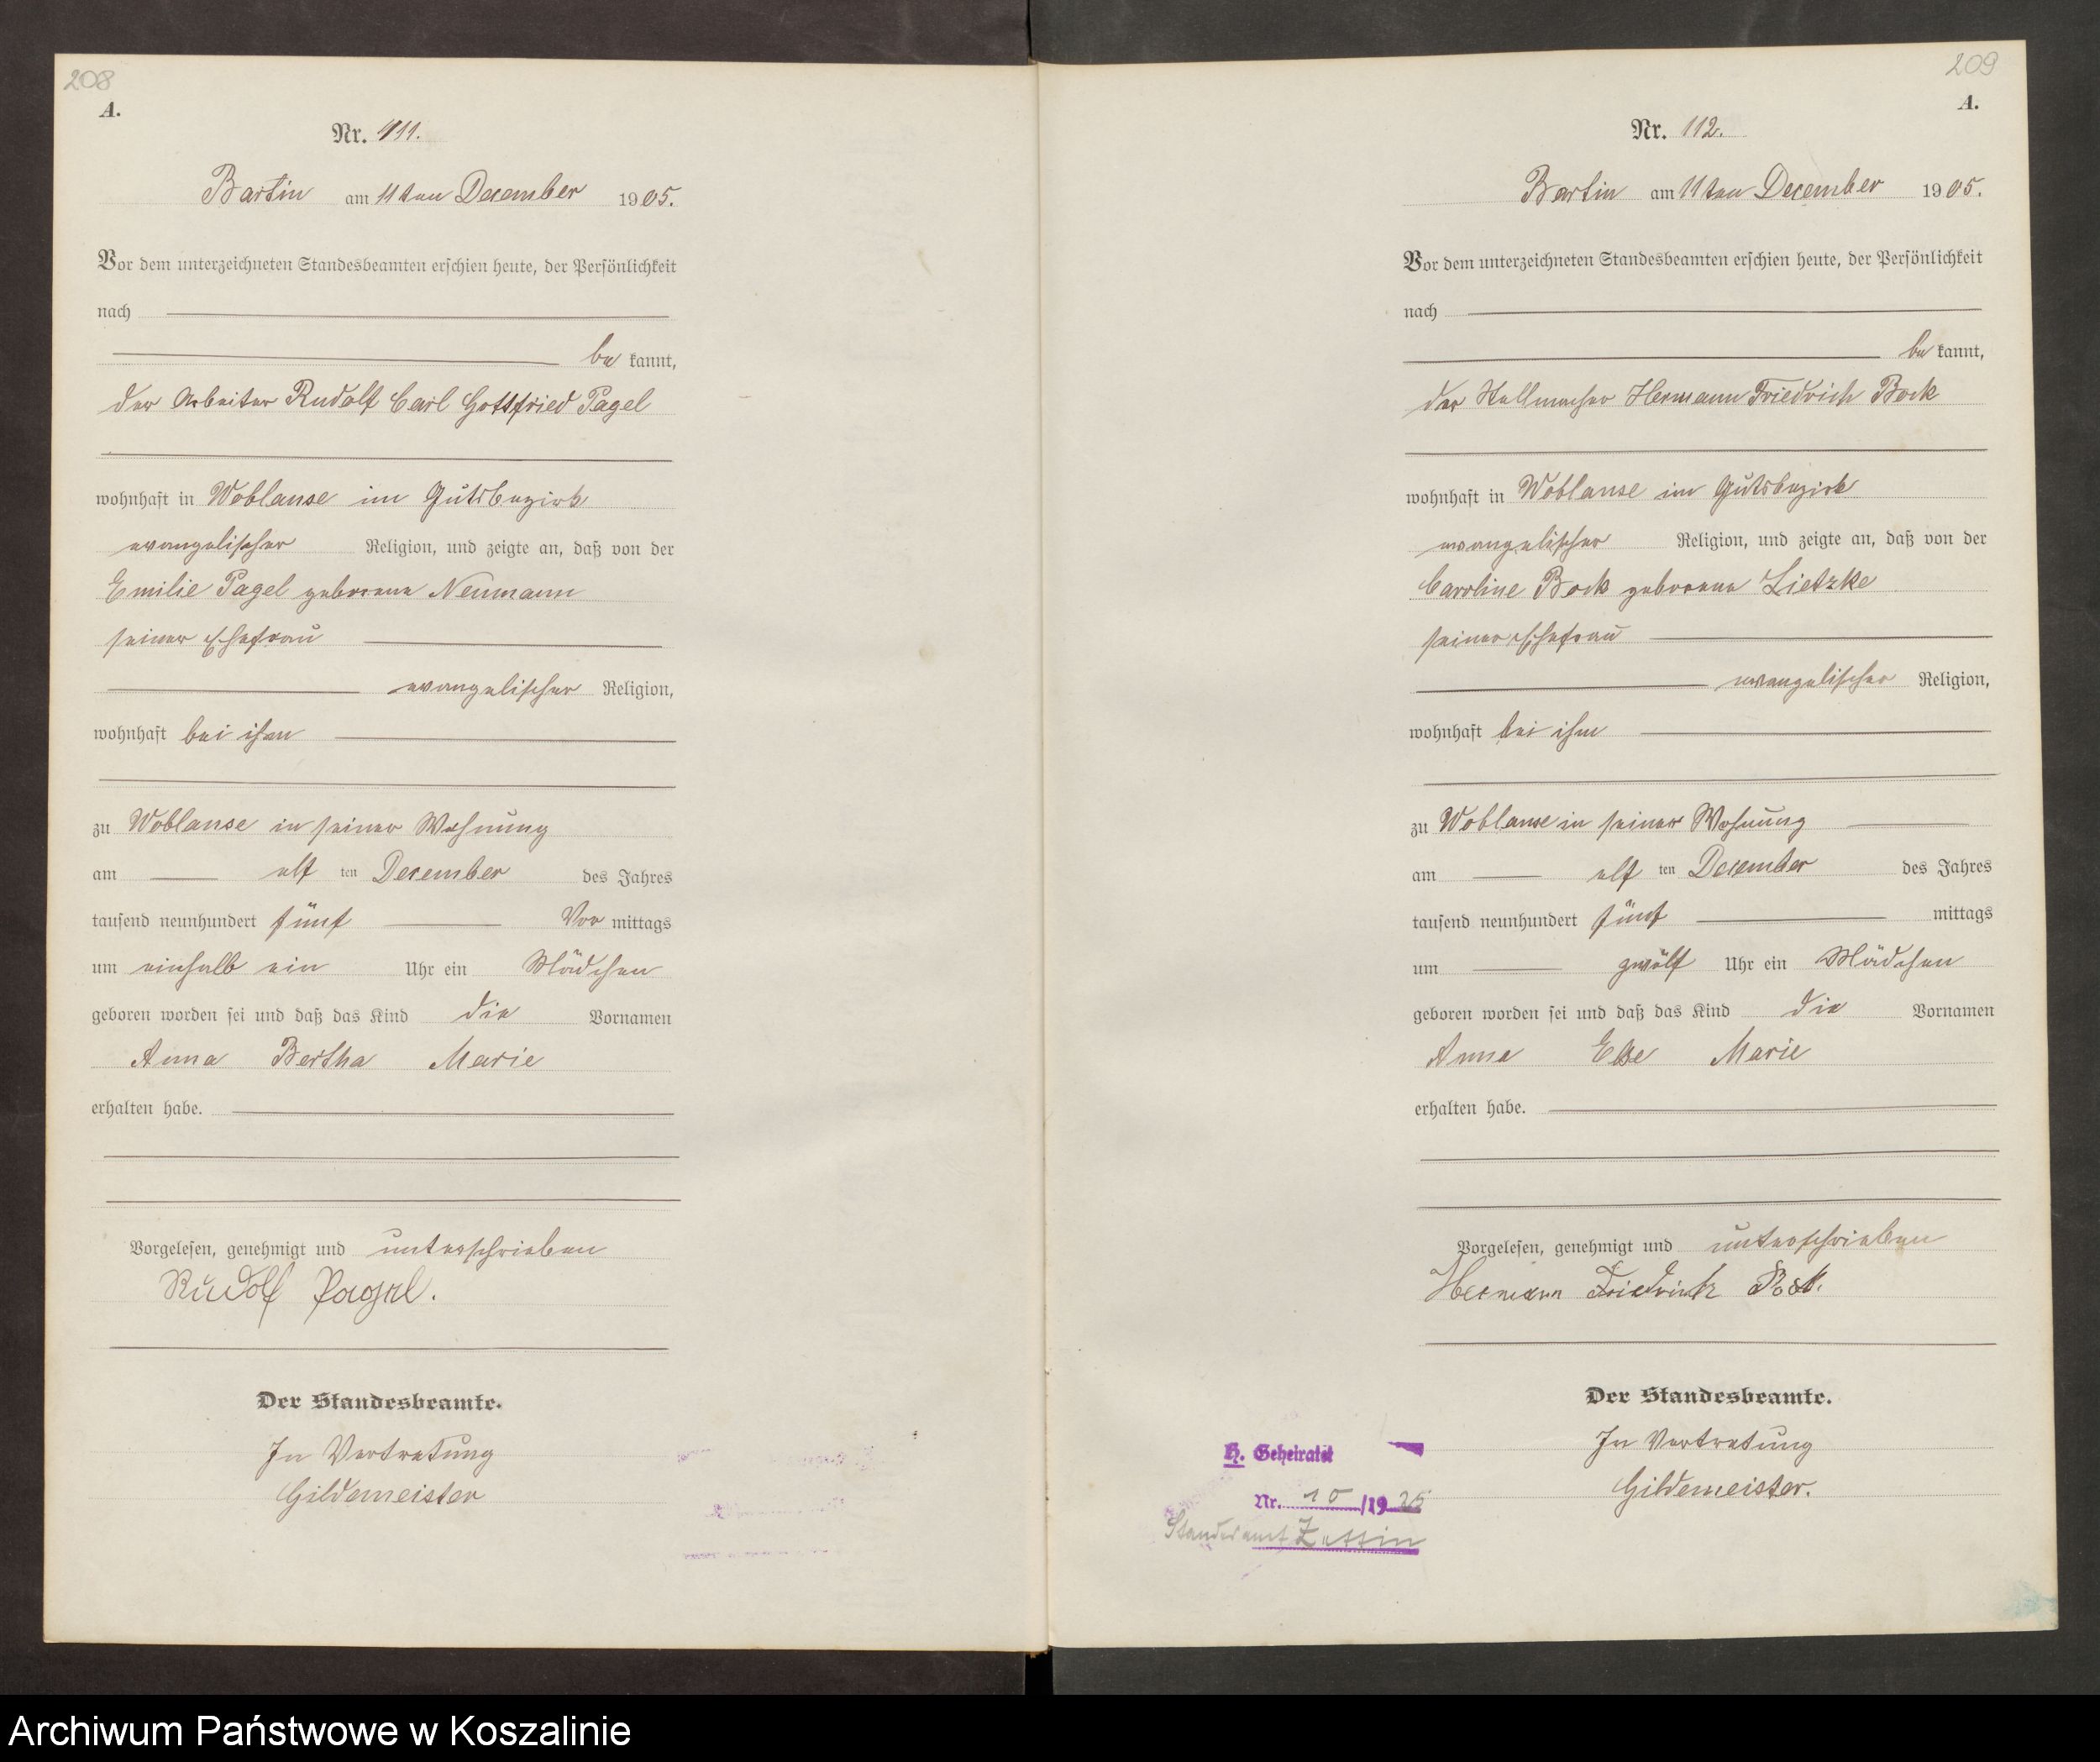 208
A.
Nr. 111.
Bartin am 11ten December 1905.
Vor dem unterzeichneten Standesbeamten erschien heute, der Persönlichkeit
nach
be kannt,
der Arbeiter Rudolf Carl Gottfried Pagel
wohnhaft in Woblanse im Gutsbezirk
evangelischer Religion, und zeigte an, daß von der
Emilie Pagel geborene Neumann
seiner Ehefrau
evangelischer Religion,
wohnhaft bei ihm
zu Woblanse in seiner Wohnung
am elf ten December des Jahres
tausend neunhundert fünf Vor mittags
um einhalb ein Uhr ein Mädchen
geboren worden sei und daß das Kind die Vornamen
Anna Bertha Marie
erhalten habe.
Vorgelesen, genehmigt und unterschrieben
Rudolf Pagel.
Der Standesbeamte.
In Vertretung
Gildemeister
209
A.
Nr. 112.
Bartin am 11ten December 1905.
Vor dem unterzeichneten Standesbeamten erschien heute, der Persönlichkeit
nach
be kannt,
der Stellmacher Hermann Friedrich Bock
wohnhaft in Woblanse im Gutsbezirk
evangelischer Religion, und zeigte an, daß von der
Caroline Bock geborene Lietzke
seiner Ehefrau
evangelischer Religion,
wohnhaft bei ihm
zu Woblanse in seiner Wohnung
am elf ten December des Jahres
tausend neunhundert fünf mittags
um zwölf Uhr ein Mädchen
geboren worden sei und daß das Kind die Vornamen
Anna Else Marie
erhalten habe.
Vorgelesen, genehmigt und unterschrieben
Hermann Friedrich Bock.
Der Standesbeamte.
In Vertretung
Gildemeister.
H. Geheiratet
Nr. 10 /19
Standesamt Zettin
Archiwum Państwowe w Koszalinie